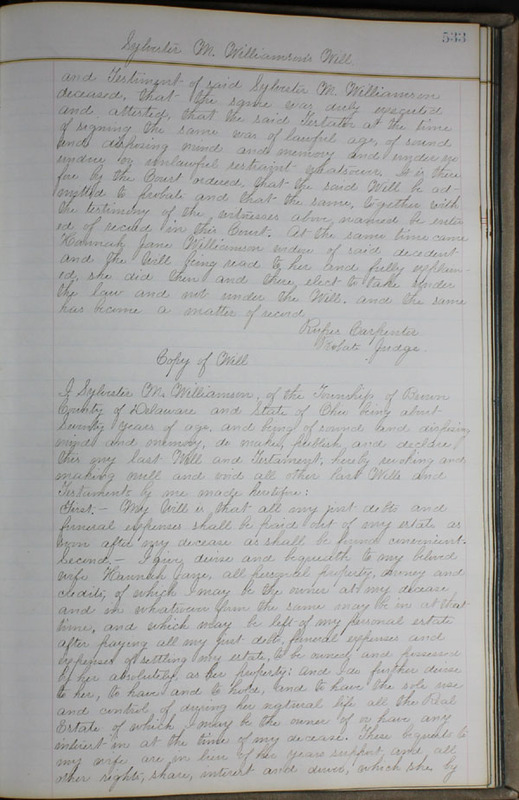 533
Sylvester M. Williamson's Will.
and Testiment of said Sylvester M. Williamson
deceased, that the same was duly executed
and attested, that the said Testator at the time
of signing the same was of lawful age, of sound
and disposing mind and memory and under no
undue or unlawful restraint whatsoever. It is there
fore by the Court ordered that the said Will be ad-
mitted to probate and that the same, together with
the testimony of the witnesses above named be enter
ed of record in this Court. At the same time came
Hannah Jane Williamson widow of said decedent
and the Will being read to her and fully explain-
ed, she did then and there, elect to take under
the law and not under the Will. and the same
has become a matter of record
Rufus Carpenter
Probate Judge.
Copy of Will
I Sylvester M. Williamson, of the Township of Brown
County of Delaware and State of Ohio being about
seventy years of age, and being of sound and disposing
mind and memory, do make, publish and declare
this my last Will and Testament, hereby revoking and
making null and void all other last Wills and
Testaments by me made heretofore:
First.- My Will is that all my just debts and
funeral expenses shall be paid out of my estate as
soon after my decease as shall be found convenient.
Second.- I give, devise and bequeath to my beloved
wife Hannah Jane, all personal property, money and
credits, of which I may be the owner at my decease
and in whatsoever form the same may be in at that
time, and which may be left of my personal estate
after paying all my just debts, funeral expenses and
expenses of settling my estate, to be owned and possessed
by her absolutely, as her property: and I do further devise
to her, to have and to hold, and to have the sole use
and control of during her natural life all the Real
Estate of which I may be the owner of or have any
interest in at the time of my decease. These bequests to
my wife are in lieu of her years support, and all
other rights, share, interest and dower, which she by